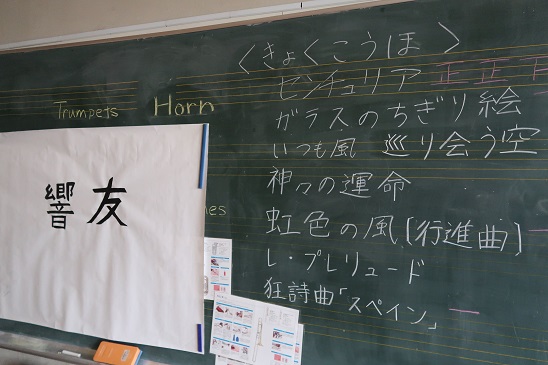 〈きょくこうほ〉
センチュリア 正正
ガラスのちぎり絵
いつも風 巡り会う空
神々の運命
虹色の風〔行進曲〕
レ・プレリュード
狂詩曲「スペイン」
Trumpets Horn
響友
nes